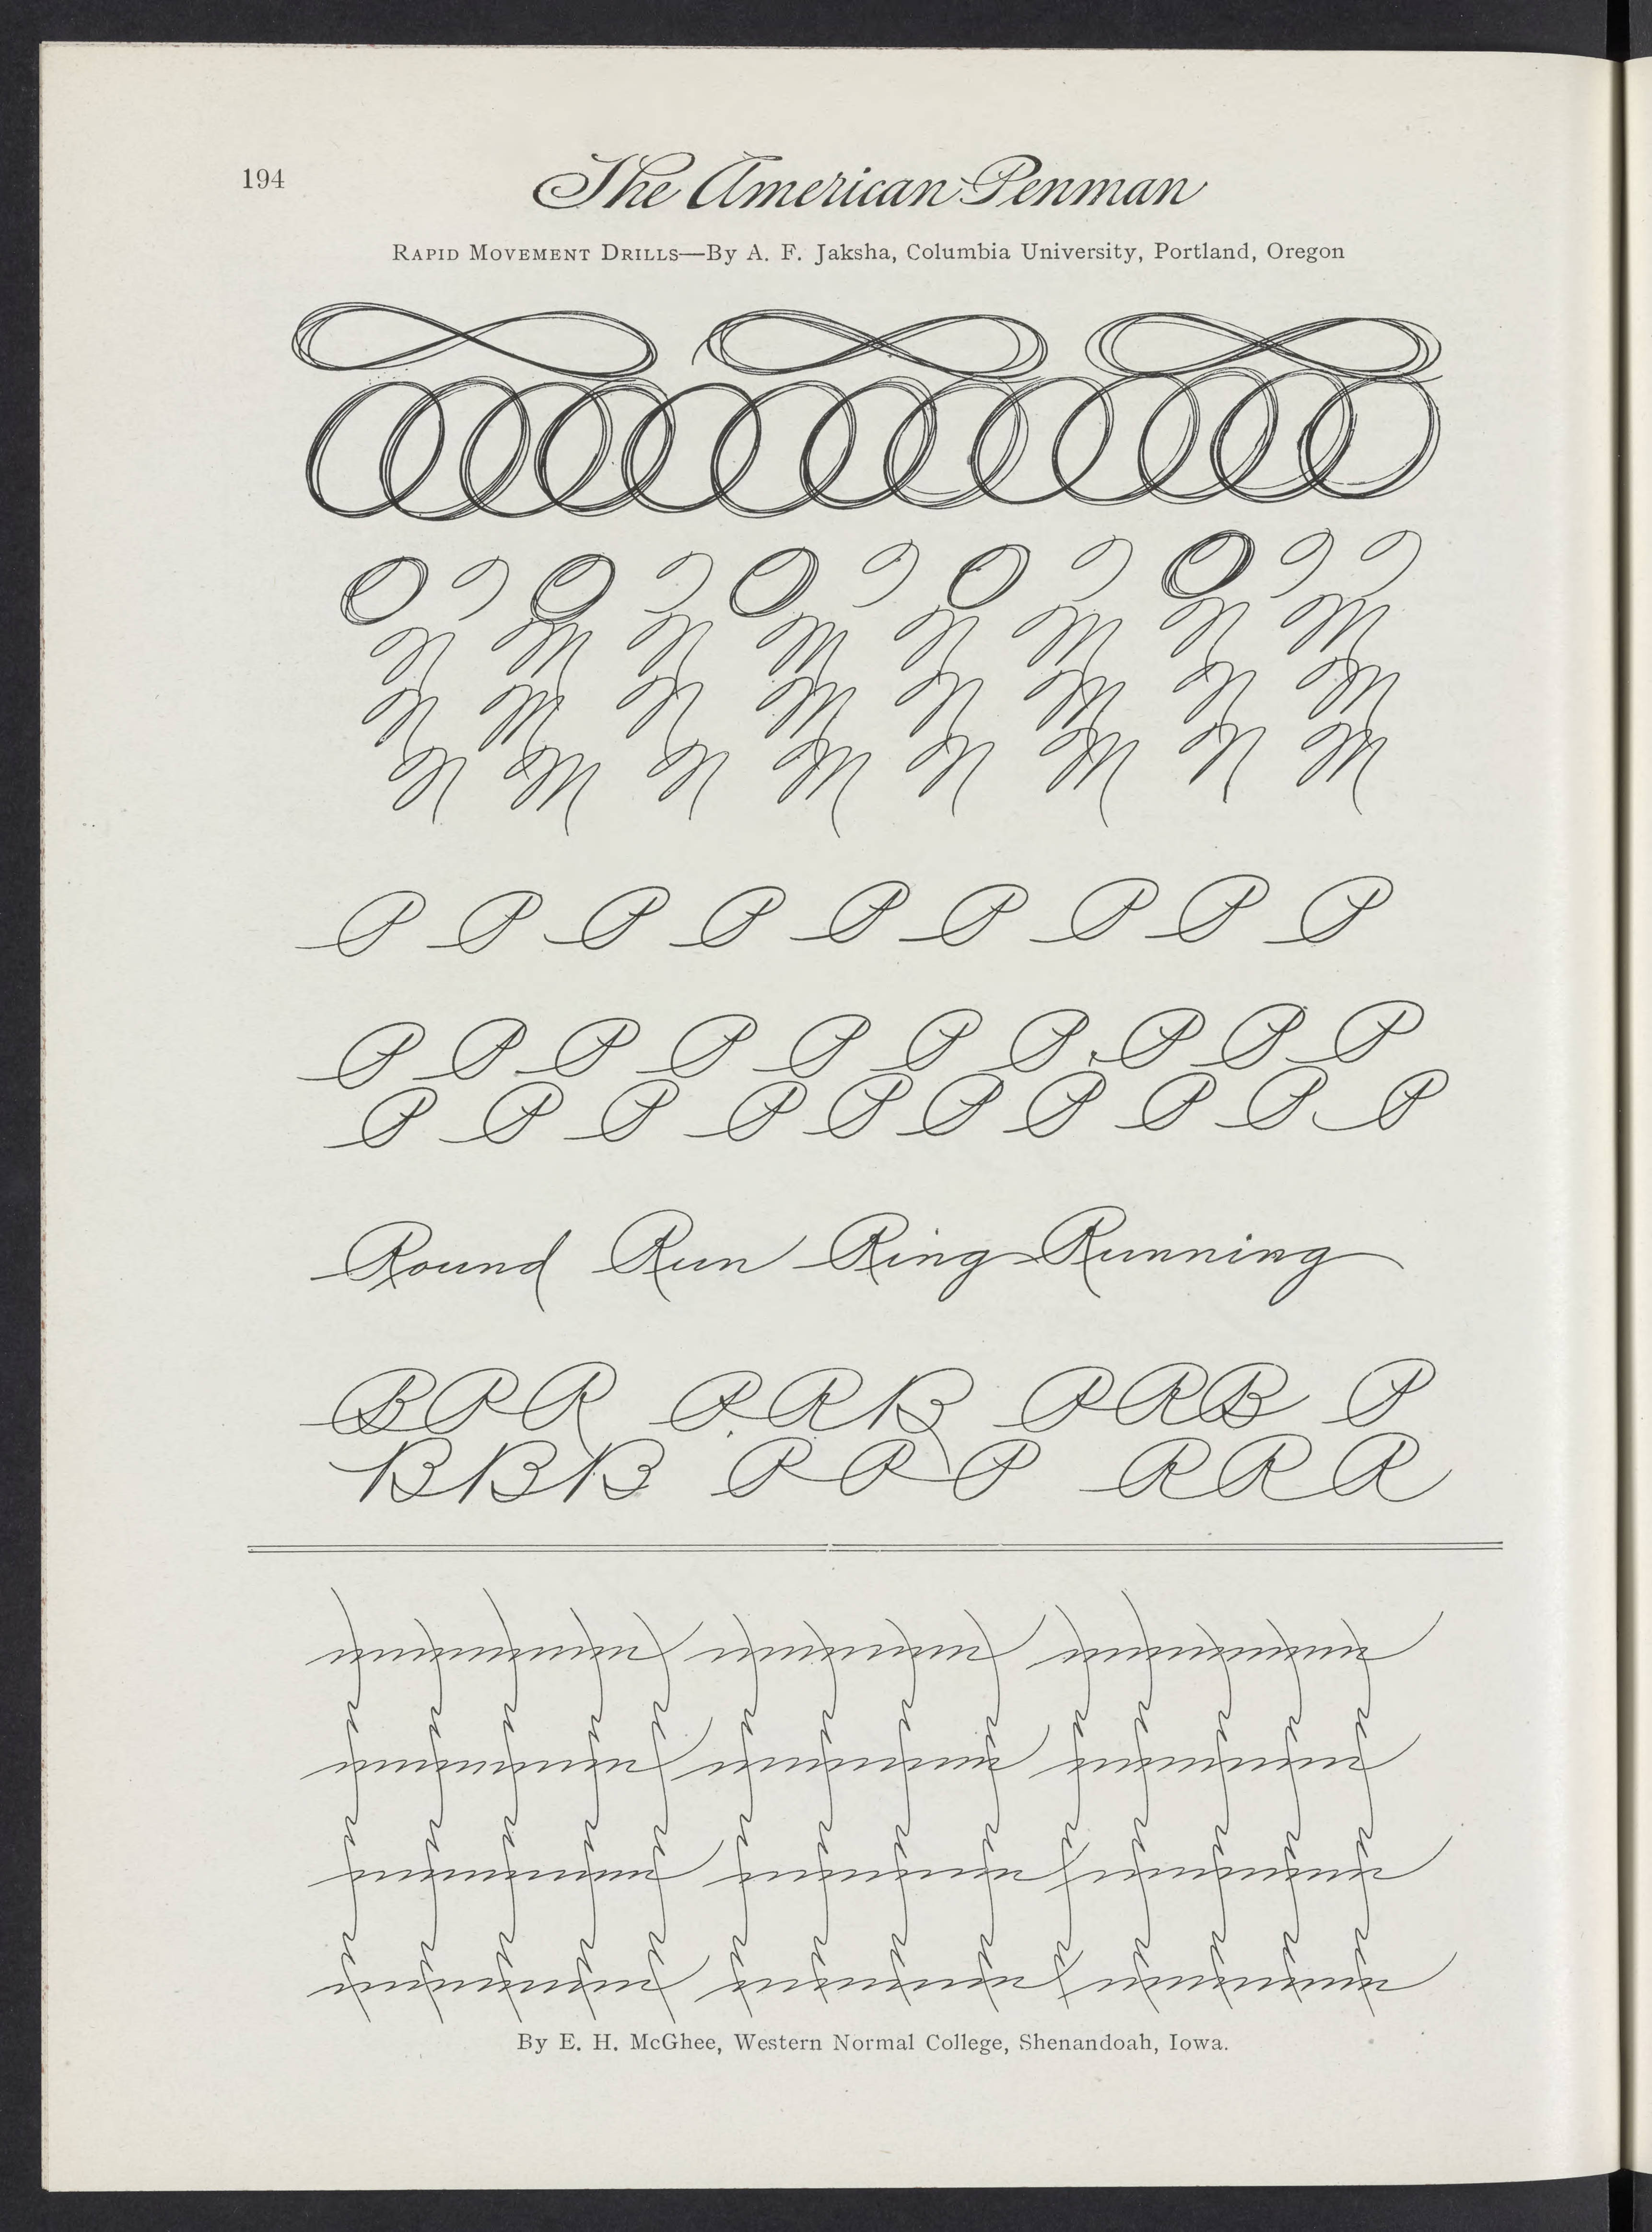 194
The American Penman
Rapid Movement Drills—By A. F. Jaksha, Columbia University, Portland, Oregon
P P P P P P P P P
P P P P P P P P P P
P P P P P P P P P P
Round Run Ring Running
B P R P R B P R B P
B B B P P P R R R
By E. H. McGhee, Western Normal College, Shenandoah, Iowa.